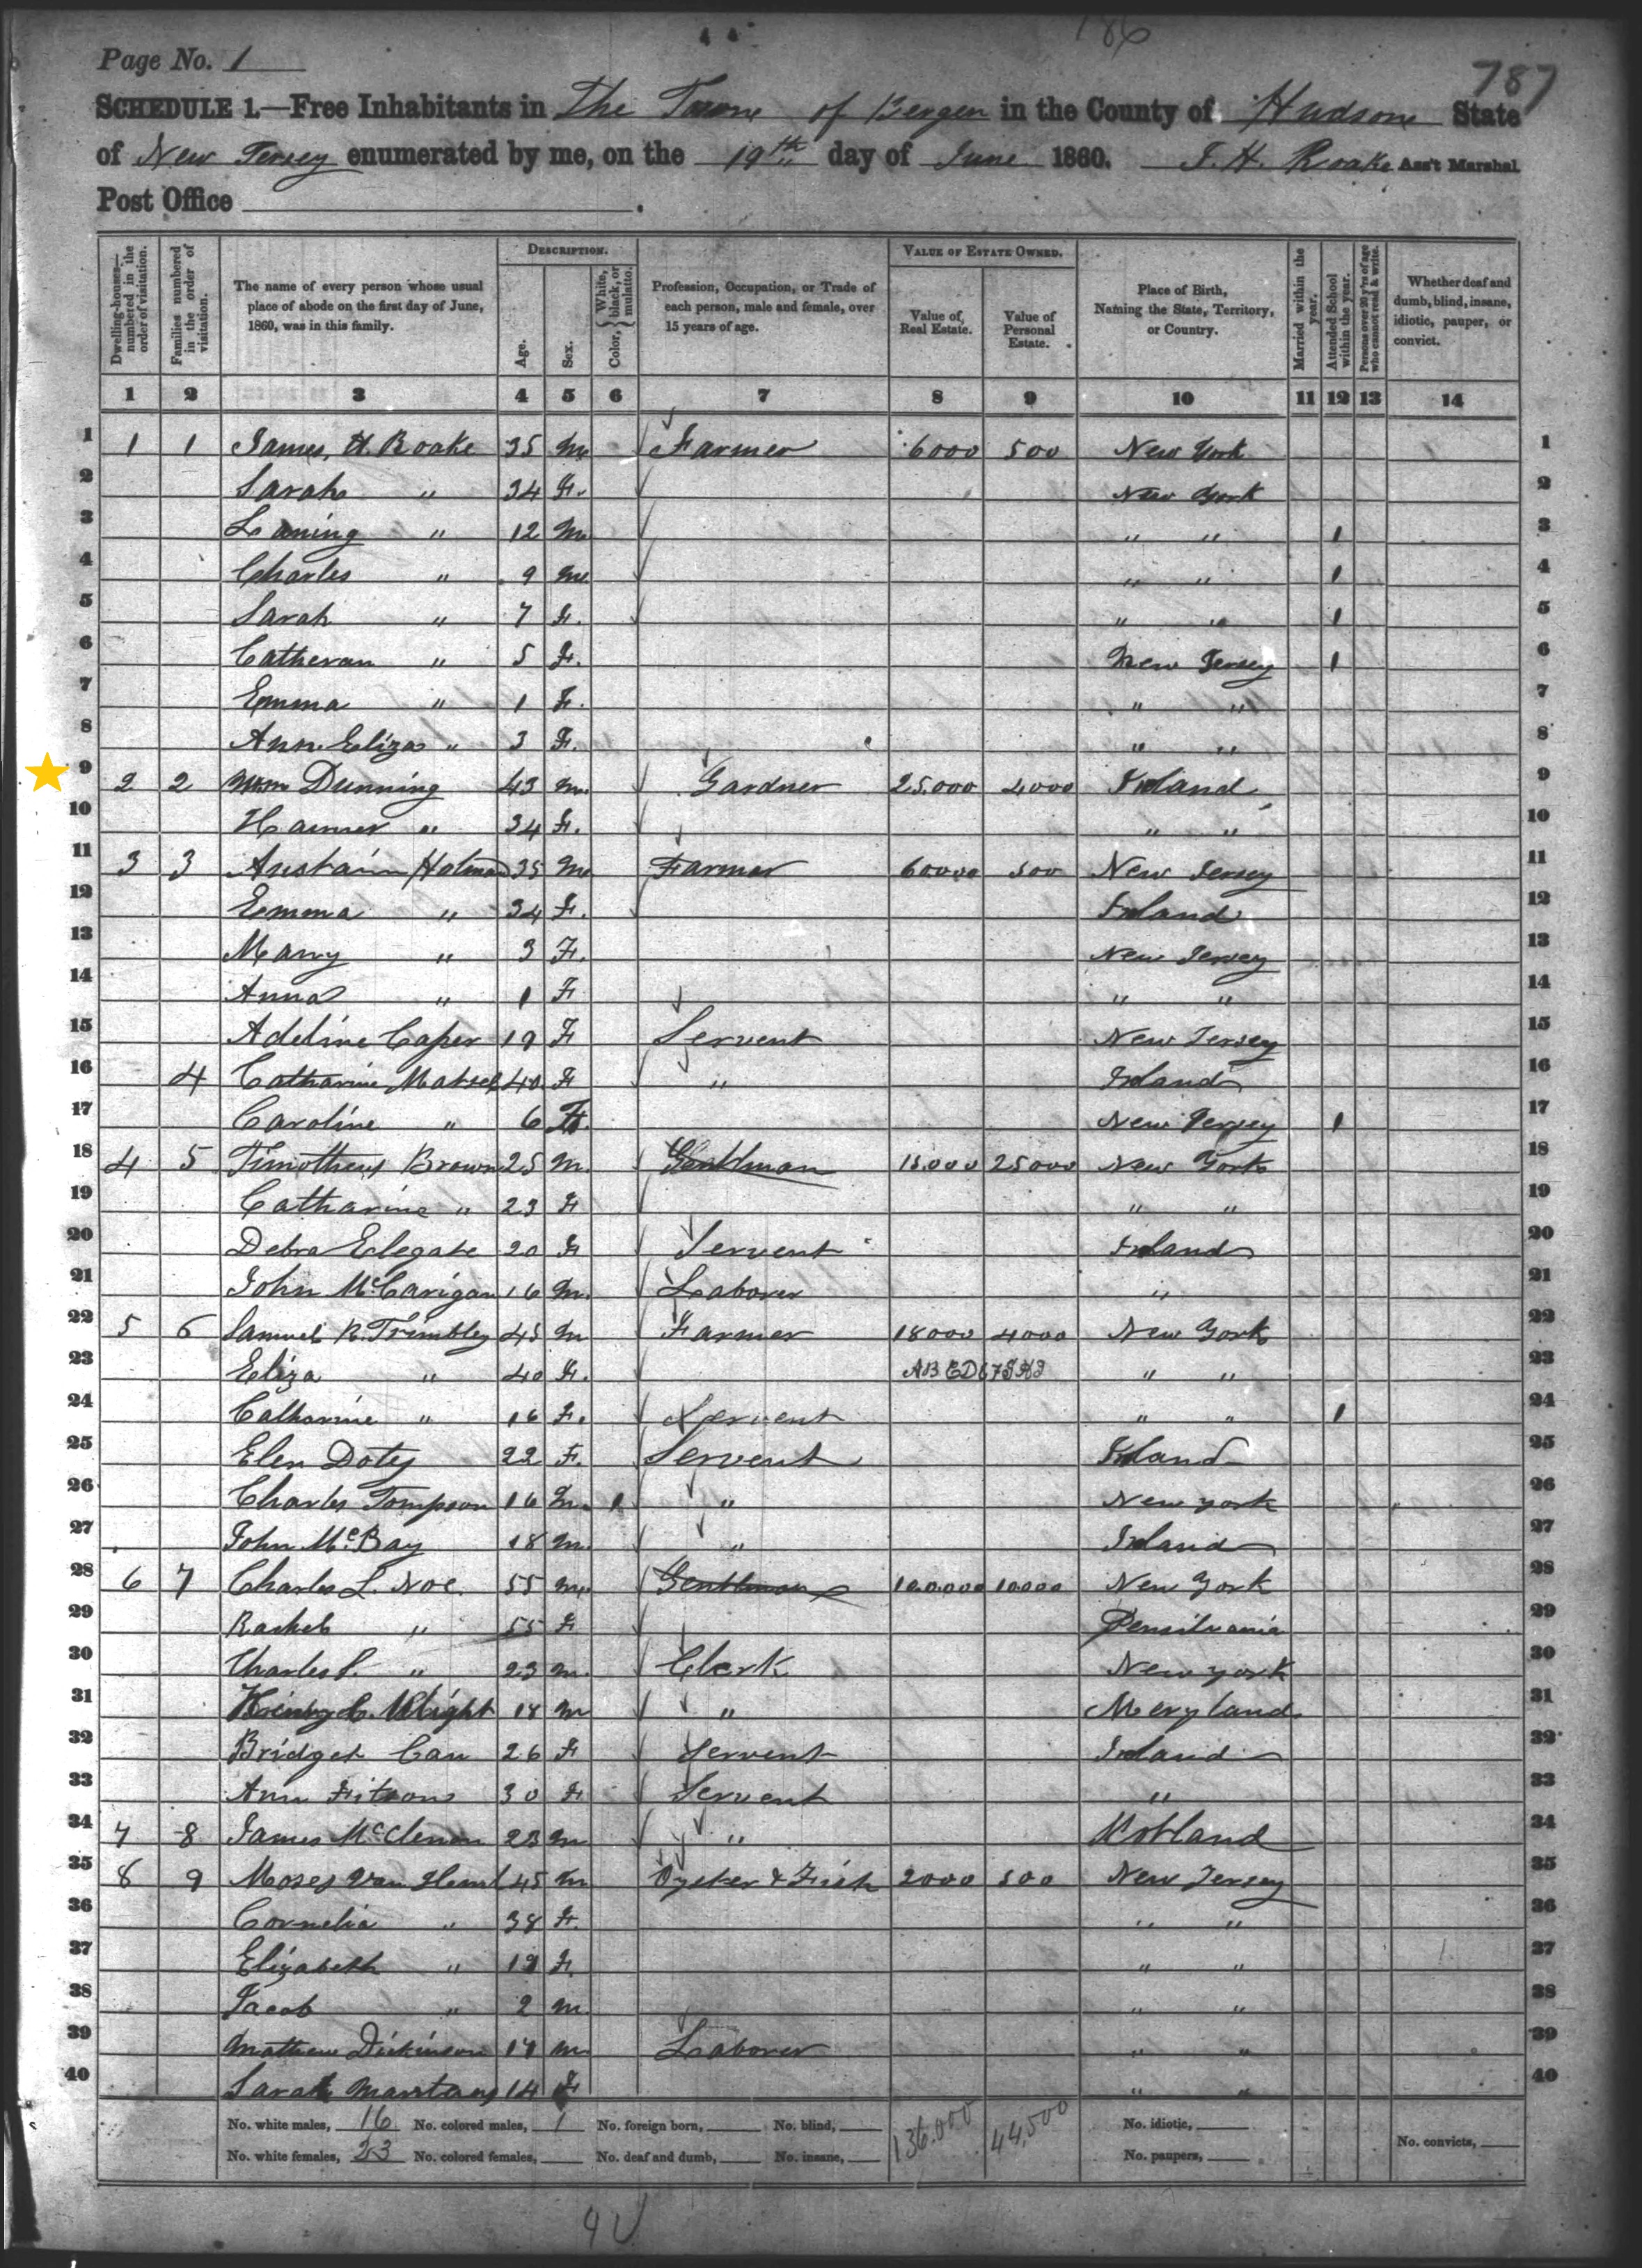 186
787
Page No. 1
SCHEDULE 1.—Free Inhabitants in The Town of Bergen in the County of Hudson State
of New Jersey enumerated by me, on the 19th day of June 1860. J. H. Roake Ass't Marshal
Post Office
Dwelling-houses—numbered in the order of visitation.
Families numbered in the order of visitation.
The name of every person whose usual place of abode on the first day of June, 1860, was in this family.
DESCRIPTION.
Age.
Sex.
Color, { White, black, or mulatto.
Profession, Occupation, or Trade of each person, male and female, over 15 years of age.
VALUE OF ESTATE OWNED.
Value of Real Estate.
Value of Personal Estate.
Place of Birth, Naming the State, Territory, or Country.
Married within the year.
Attended School within the year.
Persons over 20 y'rs of age who cannot read & write.
Whether deaf and dumb, blind, insane, idiotic, pauper, or convict.
1 2 3 4 5 6 7 8 9 10 11 12 13 14
1 1 1 James H Roake 35 m Farmer 6000 500 New York 1
2 Sarah " 34 F. New York 2
3 Laning " 12 m " " 1 3
4 Charles " 9 m " " 1 4
5 Sarah " 7 F. " " 1 5
6 Catheran " 5 F. New Jersey 1 6
7 Emma " 1 F. " " 7
8 Ann Eliza " 3 F. " " 8
9 2 2 Wm Dunning 43 m. Gardner 25.000 4000 Irland 9
10 Hanner " 34 F. " " 10
11 3 3 Austain Holman 35 m Farmer 60000 500 New Jersey 11
12 Emma " 34 F. Irland 12
13 Marry " 3 F. New Jersey 13
14 Anna " 1 F " " 14
15 Adeline Caper 19 F Servent New Jersey 15
16 4 Catharine 40 F " Irland 16
17 Caroline " 6 F. New Jersey 1 17
18 4 5 Timotheus Brown 25 m. Gentlman 15.000 25000 New York 18
19 Catharine " 23 F " " 19
20 Debra Elegate 20 F Servent Irland 20
21 John McCarigan 16 m. Laborer " 21
22 5 6 Samuel R. Trimbley 45 m Farmer 18000 4000 New York 22
23 Eliza " 40 F. " " 23
24 Catharine " 16 F. Servent " " 1 24
25 Elen Doty 22 F. Servent Irland 25
26 Charles Tompson 16 m. 1 " New york 26
27 John McBay 18 m. " Irland 27
28 6 7 Charles L. Noe. 55 m. Gentlman 100.000 10000 New York 28
29 Rachel " 55 F Pensilvania 29
30 Charles S. " 23 m. Clerk New york 30
31 Henry C. Wright 18 m " Meryland 31
32 Bridget Can 26 F Servent Irland 32
33 Ann Fitsons 30 F Servent " 33
34 7 8 James McClenan 23 m " 34
35 8 9 Moses Van 45 m Oyster & Fish 2000 500 New Jersey 35
36 Cornelia " 38 F. " " 36
37 Elizabeth " 19 F. " " 37
38 Jacob " 2 m " " 38
39 Mathew Dickinson 17 m Laborer " " 39
40 Sarah 14 F " " 40
No. white males, 16 No. colored males, 1 No. foreign born, No. blind, 136.000 44,500 No. idiotic,
No. white females, 23 No. colored females, No. deaf and dumb, No. insane, No. paupers, No. convicts,